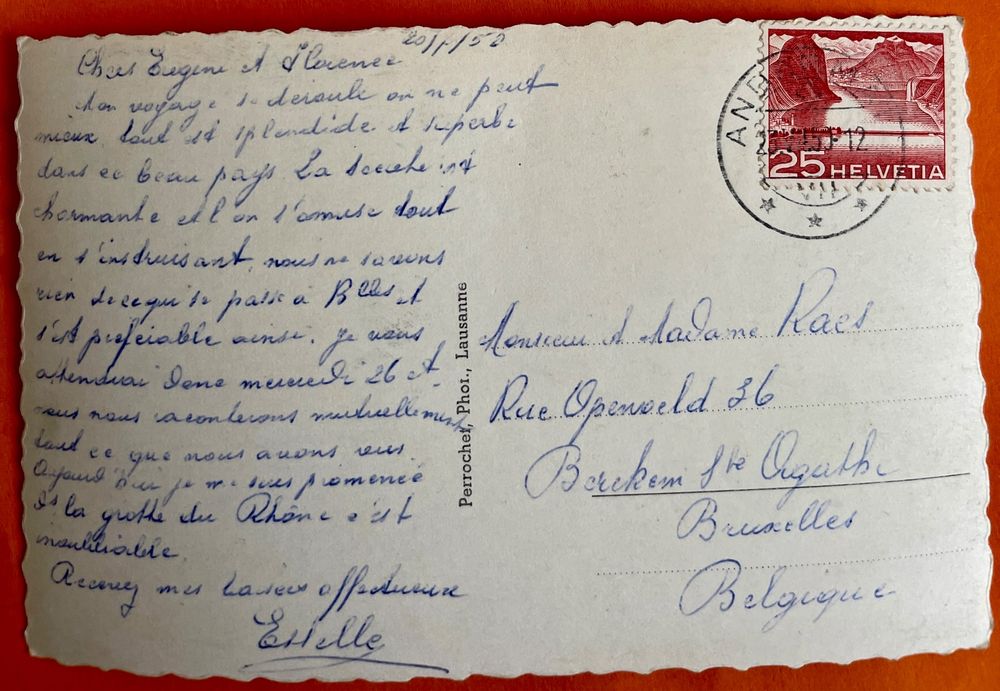 20/7/50
Chers Eugène et Florence
Mon voyage se déroule on ne peut
mieux, tout est splendide et superbe
dans ce beau pays. La société est
charmante et l'on s'amuse tout
en s'instruisant, nous ne savons
rien de ce qui se passe à Blles et
c'est préférable ainsi. Je vous
attendrai donc mercredi 26 et
nous nous raconterons mutuellement
tout ce que nous avons vus.
Aujourd'hui je me suis promenée
ds la grotte du Rhône c'est
inoubliable.
Recevez mes baisers affectueux
Estelle
Perrochet, Phot., Lausanne
25 HELVETIA
VII
Monsieur et Madame Raes
Rue Openveld 36
Berchem Ste Agathe
Bruxelles
Belgique